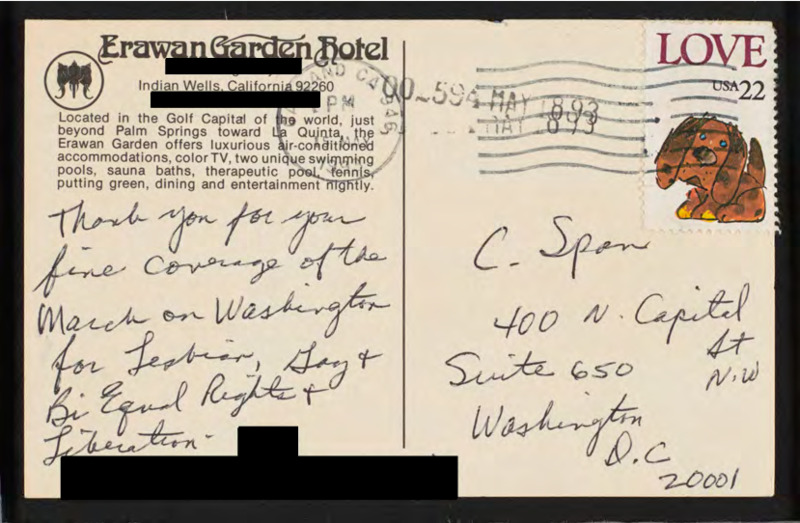 Erawan Garden Hotel
Indian Wells, California 92260
Located in the Golf Capital of the world, just
beyond Palm Springs toward La Quinta, the
Erawan Garden offers luxurious air-conditioned
accommodations, color TV, two unique swimming
pools, sauna baths, therapeutic pool, tennis,
putting green, dining and entertainment nightly.
Thank you for your
fine coverage of the
March on Washington
for Lesbian, Gay +
Bi Equal Rights +
Liberation-
LOVE
USA 22
CA
PM
MAY
C. Span
400 N. Capital
St
N.W
Suite 650
Washington
D.C
20001